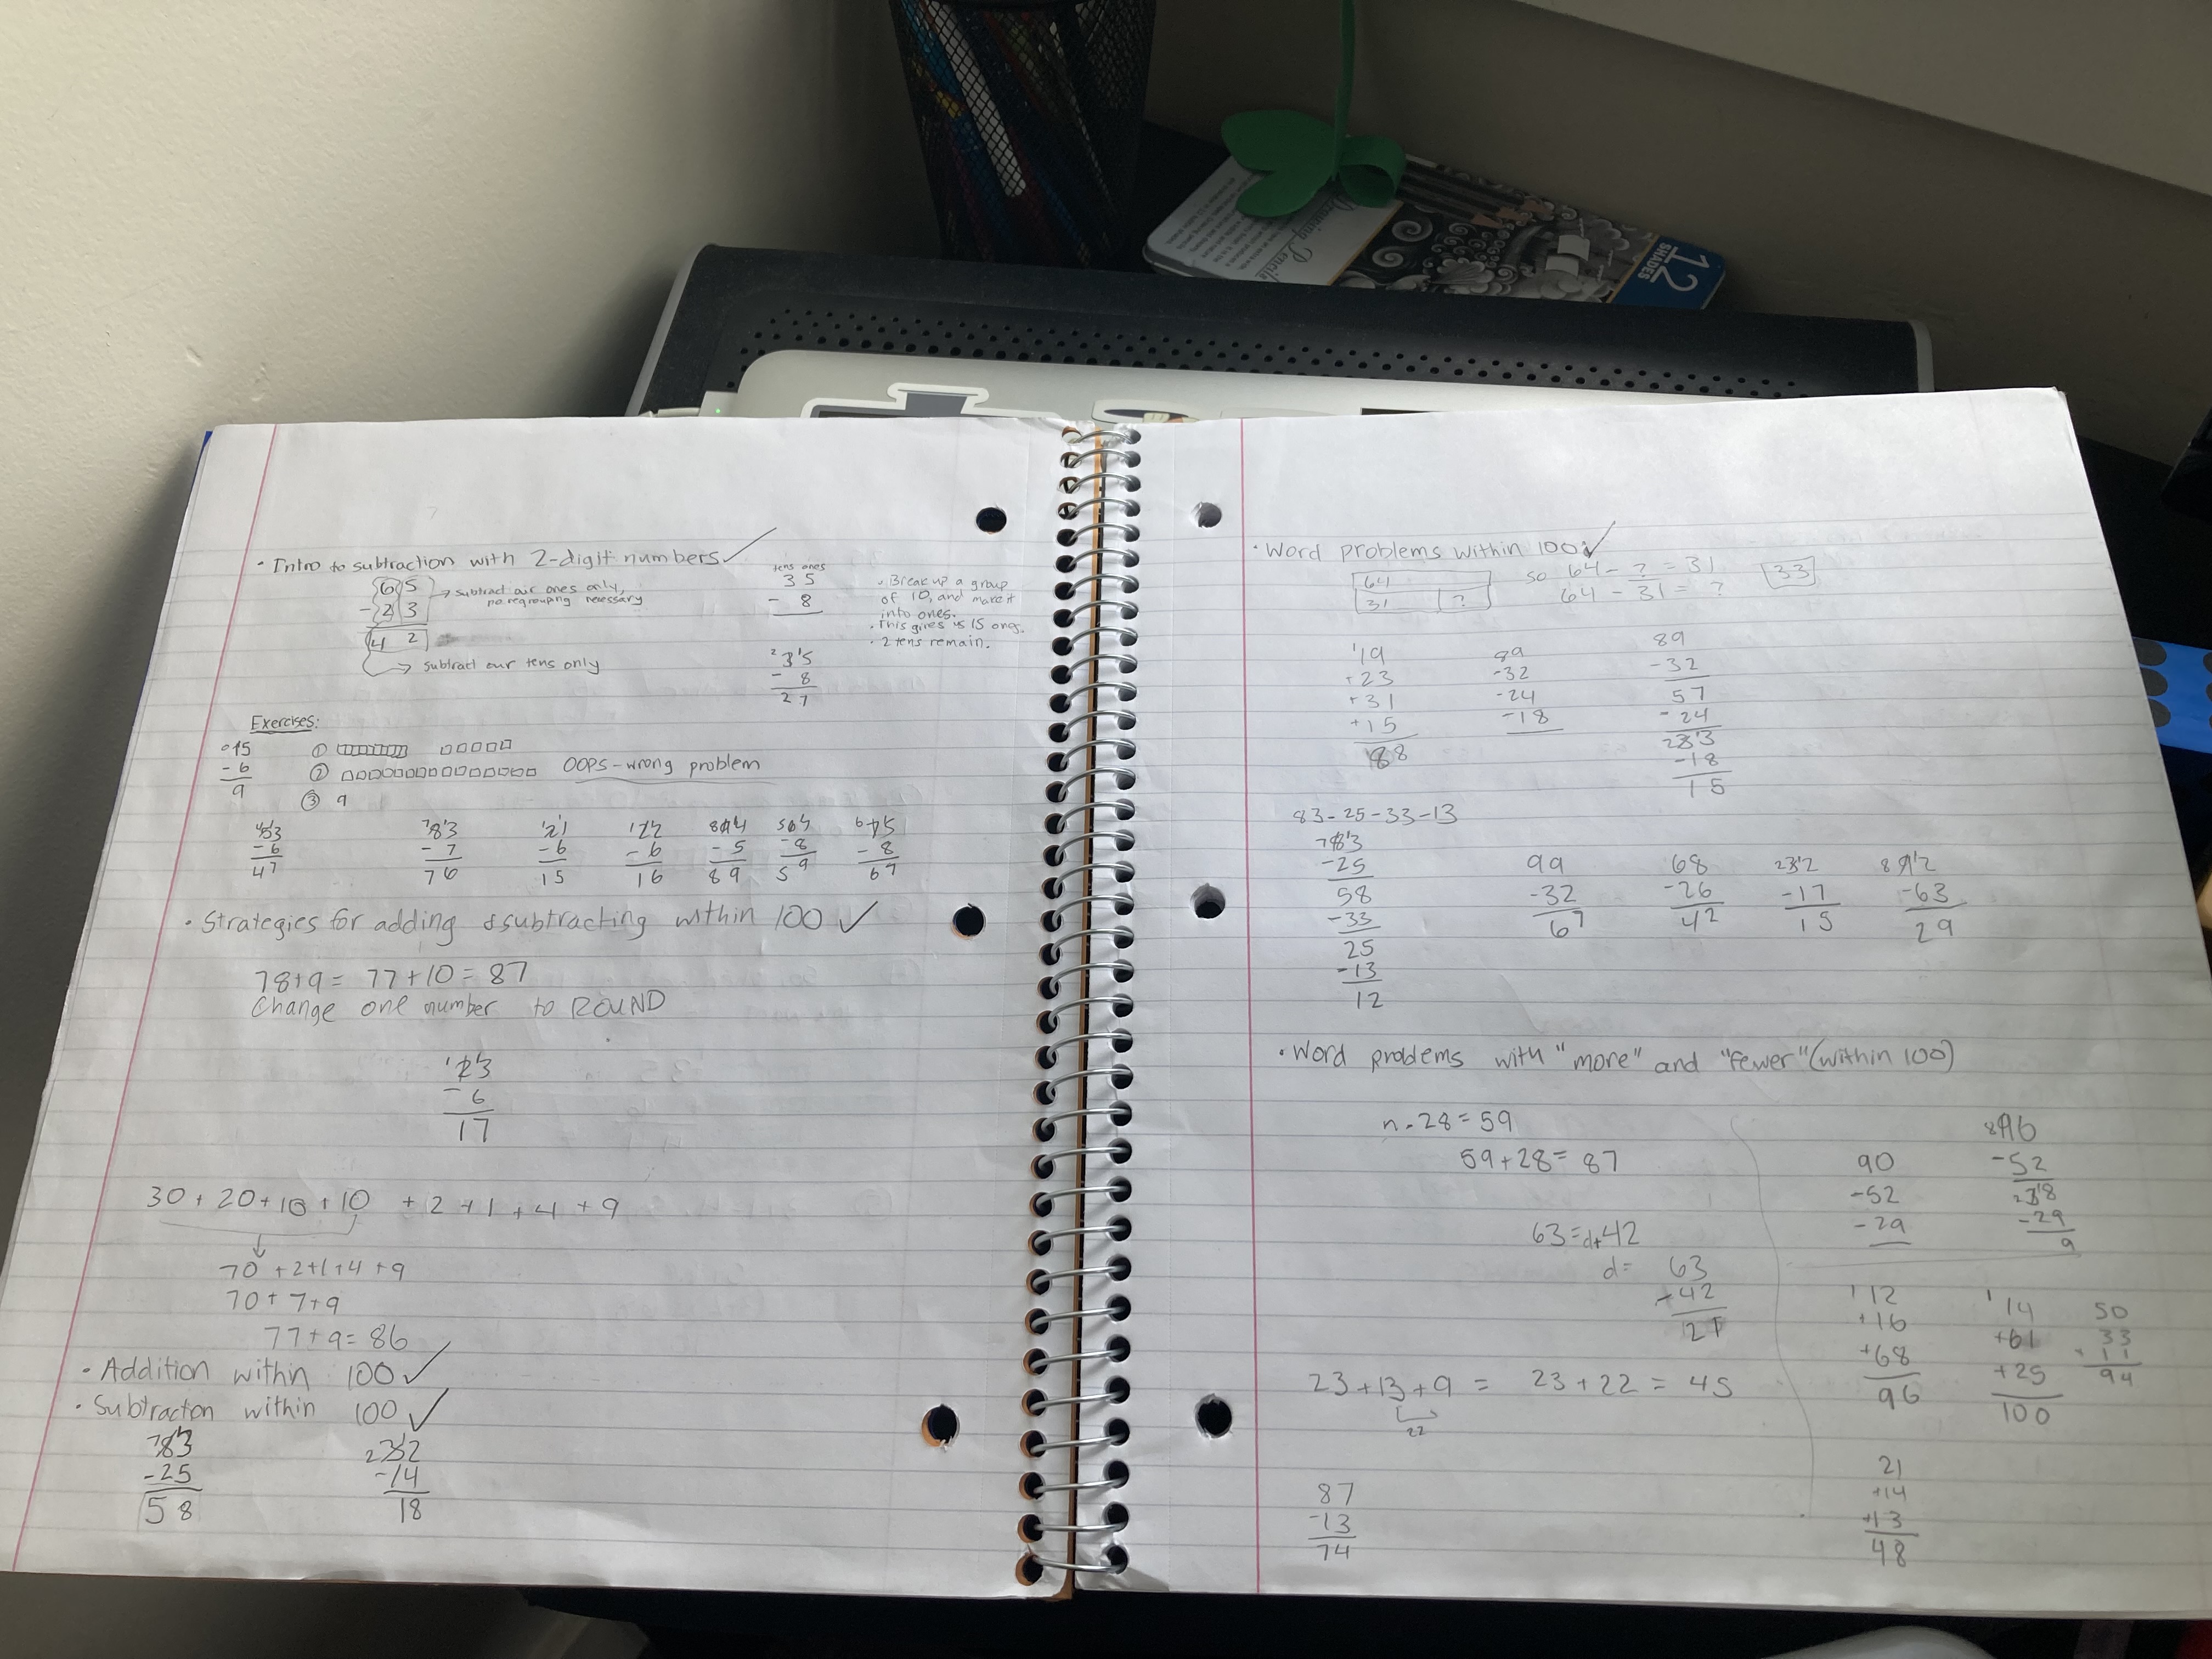 DRAWING Pencils
12
SHADES
• Intro to subtraction with 2-digit numbers ✓
65
-23
42
→ subtract our ones only,
no regrouping necessary
→ subtract our tens only
tens ones
35
- 8
• Break up a group
of 10, and make it
into ones.
• This gives us 15 ones.
• 2 tens remain.
2 3 15
- 8
27
Exercises:
0 15
-6
9
①
② OOPS - wrong problem
③ 9
4 5 13
-6
47
7 8 13
-7
76
1 2 11
-6
15
1 2 12
-6
16
8 9 14
-5
89
5 6 17
-8
59
6 7 15
-8
67
• Strategies for adding & subtracting within 100 ✓
78+9 = 77+10 = 87
Change one number to ROUND
1 2 13
- 6
17
30 + 20 + 10 + 10 + 2 + 1 + 4 + 9
↓
70 + 2+1+4 +9
70 + 7+9
77+9= 86
• Addition within 100 ✓
• Subtracton within 100 ✓
7 8 13
-25
58
2 3 12
-14
18
• Word problems within 100 ✓
64
31 ?
so 64 - ? = 31
64 - 31 = ?
33
1
19
+23
+31
+15
88
89
-32
-24
-18
89
-32
57
-24
2 3 13
-18
15
83-25-33-13
7 8 13
-25
58
-33
25
-13
12
99
-32
67
68
-26
42
2 3 12
-17
15
8 9 12
-63
29
• Word problems with "more" and "fewer" (within 100)
n - 28 = 59
59 + 28 = 87
63 = d + 42
d = 63
- 42
21
23 + 13 + 9 = 23 + 22 = 45
22
87
-13
74
90
-52
-29
8 9 10
-52
2 3 18
-29
9
1
12
+16
+68
96
1
14
+61
+25
100
50
33
+ 11
94
21
+14
+13
48